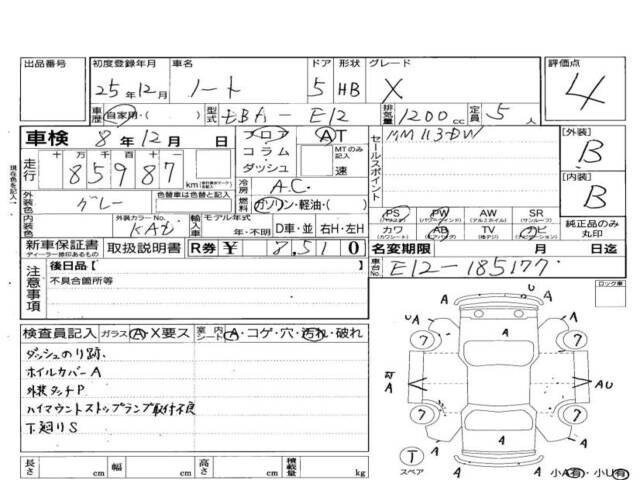 出品番号 初度登録年月 車名 ドア 形状 グレード 評価点
25年12月 ノート 5 HB X 4
車歴 自家用・( ) 型式 EBA-E12 排気量 1200cc 定員 5人
車検 8年12月 日 フロア AT セールスポイント MM113DW [外装]
走行 十万 万 千 百 十 一 コラム MTのみ記入 B
85987 km ダッシュ 速
現在色を記入 外装色 グレー 色替車は色替と記入 冷房 A.C. [内装]
燃料 ガソリン・軽油・( ) B
PS PW AW SR
(パワーウインド) (アルミホイル) (サンルーフ)
内装色 外装カラーNo. KAD 輸入車 モデル年式 D車・並 カワ AB TV ナビ 純正品のみ丸印
年・不明 右H・左H (カワシート) (エアバッグ)
新車保証書 取扱説明書 R券 ¥ 8,510 名変期限 月 日迄
ディーラー捺印あるもの
注意事項 後日品【 】 車台No. E12-185177
不具合箇所等 ロック車
検査員記入 ガラス A・X要ス 室内シート A・コゲ・穴・汚れ・破れ
ダッシュのり跡.
ホイルカバーA
外装タッチP
ハイマウントストップランプ取付不良
下廻りS
UA A A A
7 A 7
A AU
7 7
A A A A
T
スペア A 小A有・小U有
長さ cm 幅 cm 高さ cm 積載量 kg